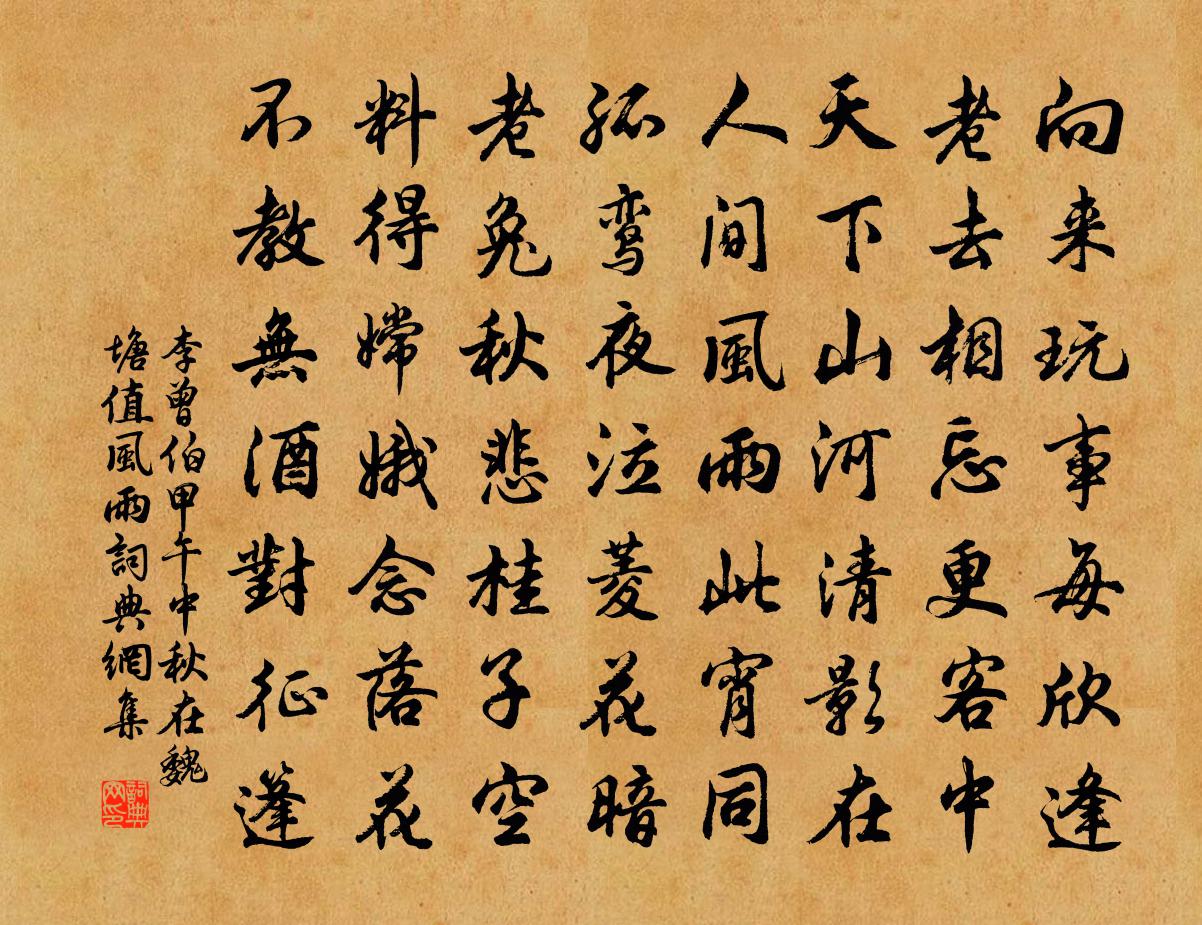 向来玩事每欣逢
老去相忘更客中
天下山河清影在
人间風雨此宵同
孤鸾夜泣菱花暗
老兔秋悲桂子空
料得嫦娥念落花
不教無酒對征蓬
李曾伯甲午中秋在魏
塘值風雨詞典網集
詞典网印